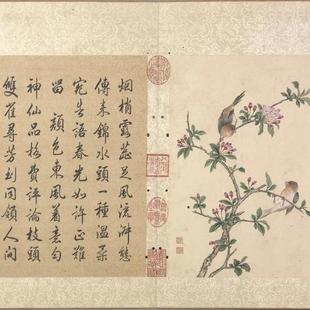 烟梢露蕊足風流瀣態
傳来錦水頭一種温柔
宛告語春光如許正难
留 顔色東風着意勻
神仙品格費評論枝頭
雙雀尋芳到同領人間